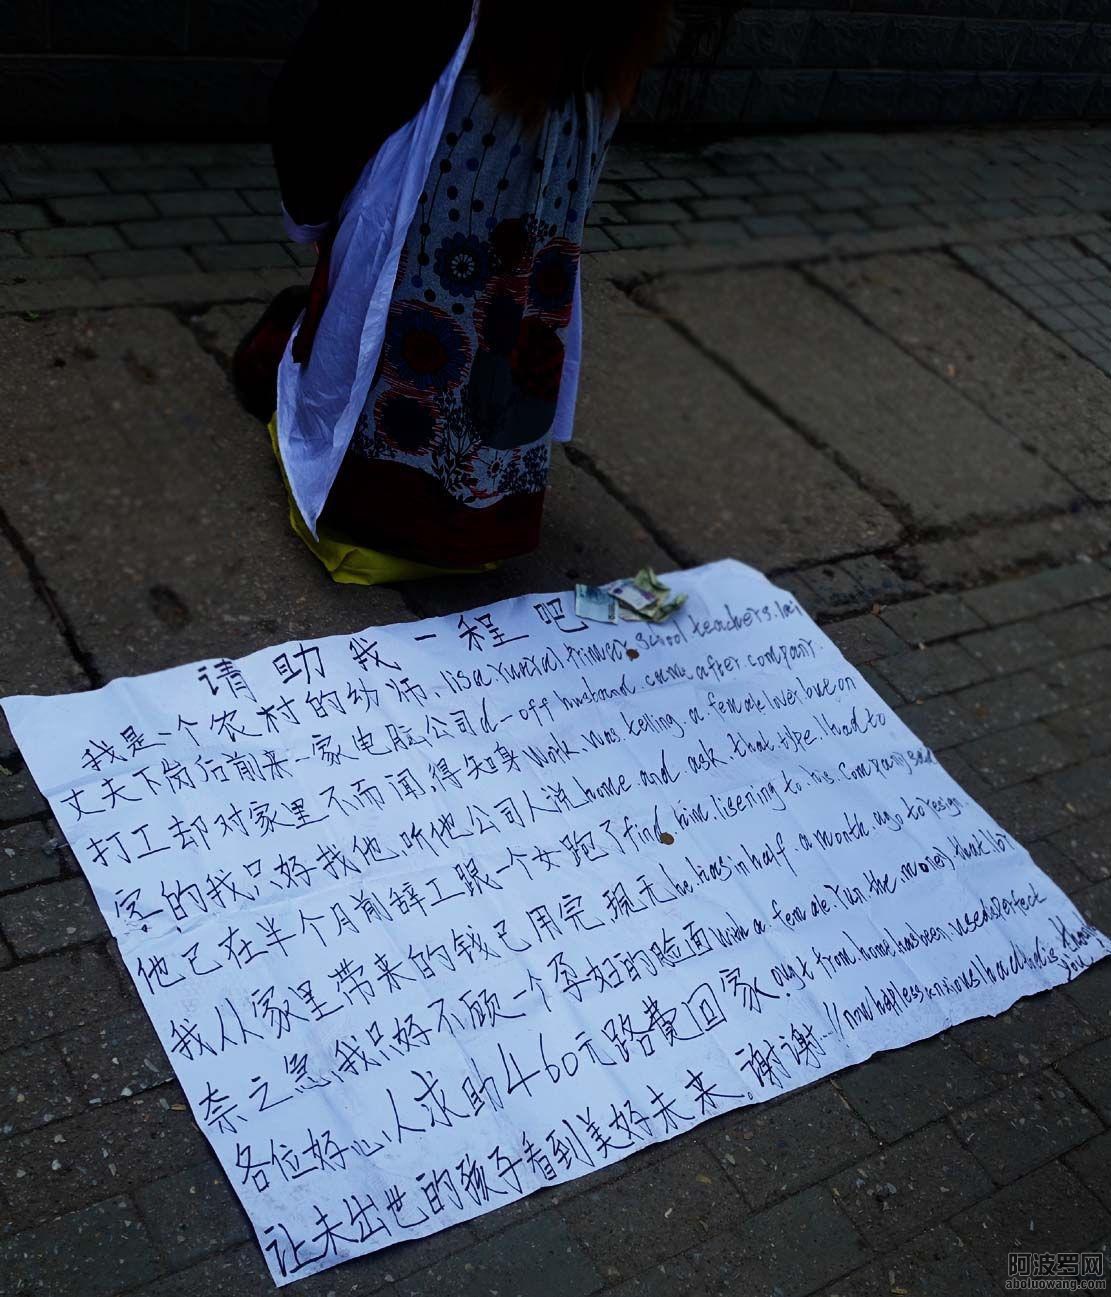 请助我一程吧
我是一个农村的幼师. Is a rural primer school teachers. lai
丈夫下岗后前来一家电脑公司d-off husband. came after. company.
打工却对家里不而闻,得知身work. was. telling. a. female liver bue on
害的我只好找他.听他公司人说home. and. ask. that. type. I had to
他已在半个月前辞工跟一个女跑了find him. lisering to. his. company said
我从家里带来的钱已用完.现无he. has in half. a month. ago to resign.
奈之急,我只好不顾一个孕妇的脸面with a. female. run the. money that I br
各位好心人求助460元路费回家.ougt from. home. has been. used perfect
让未出世的孩子看到美好未来。谢谢…!! now hapless anxious I had no is thank
you
阿波罗网
aboluowang.com